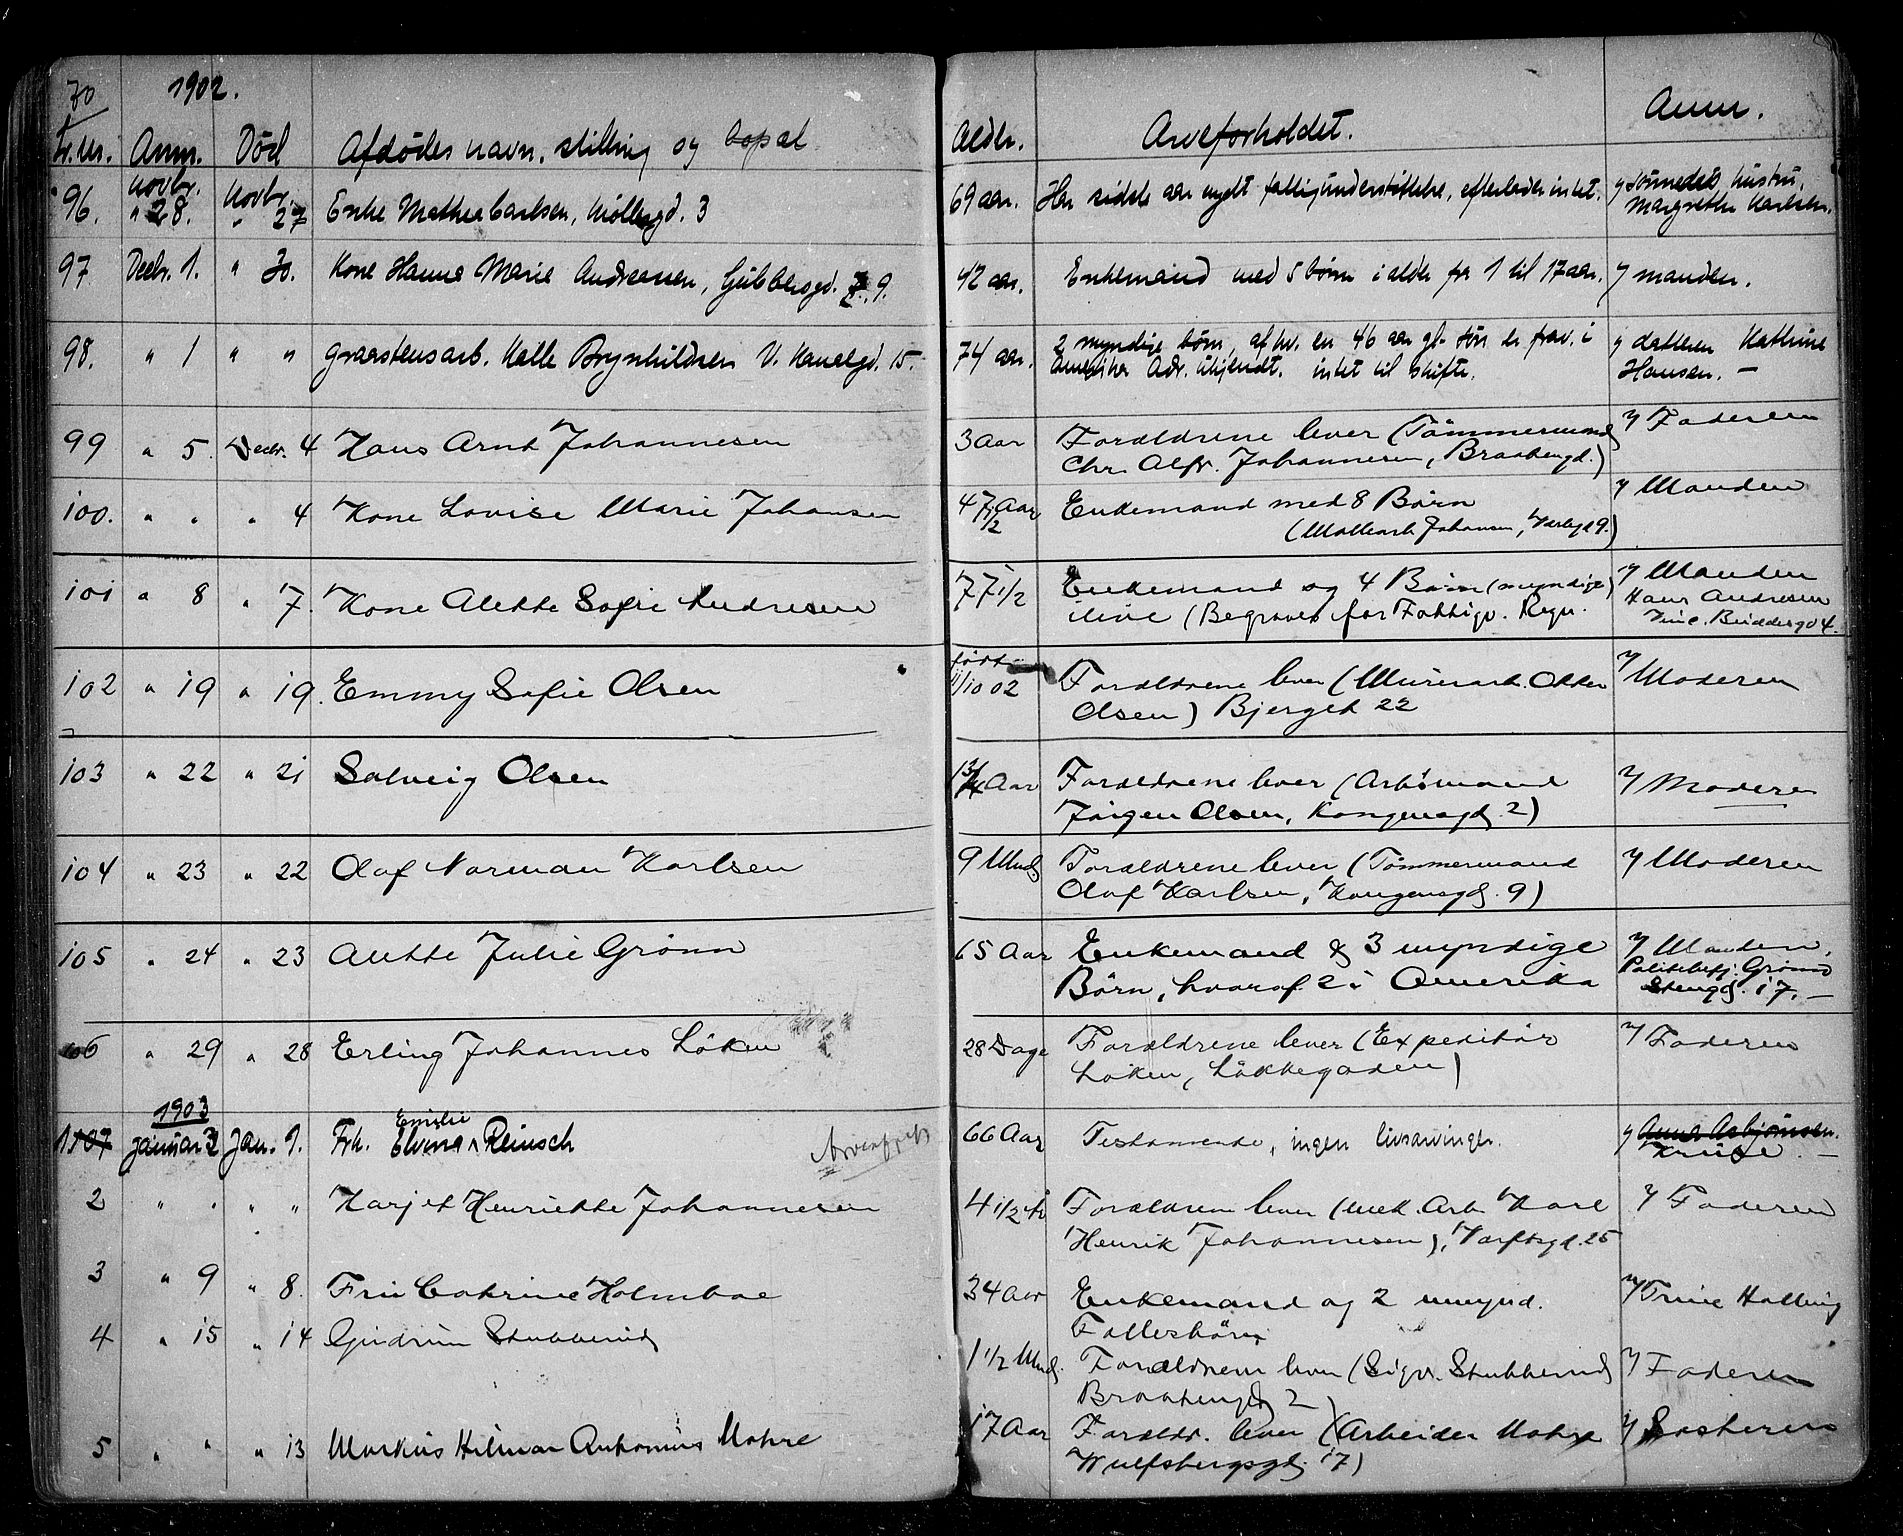 70 1902.
Lr. nr. Anm. Död Afdødes navn, stilling og bopæl Alder. Arveforholdet. Anm.
96. Novbr. " 28. Novbr. " 27 Enke Mathea Carlsen, Møllegd. 3 69 aar. Har sidste aar nydt fattigunderstøttelse, efterlader intet. y sønnens hustru,
Margrethe Karlsen.
97 Decbr. 1. " 30. Kone Hanna Marie Andreassen, Gjübbegd. 9. 42 aar. Enkemand med 5 børn i alder fra 1 til 17 aar. y manden.
98. " 1 " " graastensarb. Kalle Brynhildsen V. Kanalgd. 15. 74 aar. 2 myndige børn, af hv. en 46 aar gl. søn er frav. i y datteren Kathrine
Amerika Adr. ukjendt. intet til skifte. Hansen. —
99 " 5. Decbr. 4 Hans Arnt Johannesen 3 Aar Forældrene lever (Tömmermand y Faderen
Chr. Alfr. Johannesen, Braatengd.)
100. " " " 4 Kone Lovise Marie Johansen 47 1/2 Aar Enkemand med 8 Børn y Manden
(Johansen, 9.)
101 " 8 " 7. Kone Alette Sofie Andresen 77 1/2 Enkemand og 4 Børn (myndige) y Manden
ilive (Begraves for Fattigv. Regn. Hans Andresen
Buddesgd 4.
102 " 19 " 19. Emmy Sofie Olsen født 11/10 02 Forældrene lever (Murerarb. Otto y Moderen
Olsen) Bjerget 22
103 " 22 " 21 Solveig Olsen 1 3/4 Aar Forældrene lever (Arb.mand y Moderen
Jörgen Olsen, Kongensgd. 2)
104 " 23 " 22 Olaf Norman Karlsen 9 Mnd. Forældrene lever (Tømmermand y Moderen
Olaf Karlsen, Kongensgd. 9)
105 " 24 " 23 Alette Julie Grönn 65 Aar Enkemand & 3 myndige y Manden,
Børn, hvoraf 2 i Amerika Politibetj. Grönn
Stengd. 17. —
106 " 29 " 28 Erling Johannes Löken 28 Dage Forældrene lever (Expeditör y Faderen
Löken, Løkkegaden)
1903
1 Januar 2 Jan. 1. Frk. Elvina Emilie Reinsch 66 Aar Testamente, ingen livsarvinger. y Anna Asbjörnsen.
Kruse. —
2 " " " " Harjet Henriette Johannesen 4 1/2 Forældrene lever (mek. Arb. Karl y Faderen
Henrik Johannesen), Værftsgd. 25
3 " 9 " 8. Fru Cathrine Holmboe 34 Aar Enkemand og 2 umynd. y Trine Halling
Fællesbörn
4 " 15 " 14 Gudrun Stubberud 1 1/2 Mnd. Forældrene lever (Sigv. Stubberud y Faderen
Braatengd. 2)
5 " " " 13 Markus Hilmar Antonius Mohre 17 Aar Foreldr. lever (Arbeider Mohre y Søsteren
Wulfsbergsgd. 17)